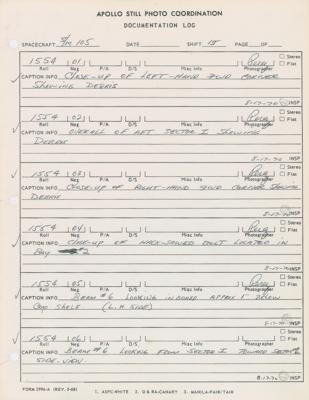 APOLLO STILL PHOTO COORDINATION
DOCUMENTATION LOG
SPACECRAFT S/M 105 DATE SHIFT 1ST PAGE OF
1554 01 Stereo
Roll Neg P/A D/S Misc Info Photographer Flat
CAPTION INFO CLOSE-UP OF LEFT-HAND FWD CORNER
SHOWING DEBRIS
8-17-70 INSP
1554 02 Stereo
Roll Neg P/A D/S Misc Info Photographer Flat
CAPTION INFO OVERALL OF AFT SECTOR I SHOWING
DEBRIS
8-17-70 INSP
1554 03 Stereo
Roll Neg P/A D/S Misc Info Photographer Flat
CAPTION INFO CLOSE-UP OF RIGHT-HAND FWD CORNER SHOWING
DEBRIS
8-17-70 INSP
1554 04 Stereo
Roll Neg P/A D/S Misc Info Photographer Flat
CAPTION INFO CLOSE-UP OF HACK-SAWED BOLT LOCATED IN
BAY #2
8-17-70 INSP
1554 05 Stereo
Roll Neg P/A D/S Misc Info Photographer Flat
CAPTION INFO BEAM #6 LOOKING INBOARD APPROX 1" BELOW
SHELF (L.H. SIDE)
8-17-70 INSP
1554 06 Stereo
Roll Neg P/A D/S Misc Info Photographer Flat
CAPTION INFO BEAM #6 LOOKING FROM SECTOR I TOWARD SECTOR 6
SIDE-VIEW.
8-17-70 INSP
FORM 2996-A (REV. 5-68) 1. ASPC-WHITE 2. Q & RA-CANARY 3. MANILA-FAIR/TAIR